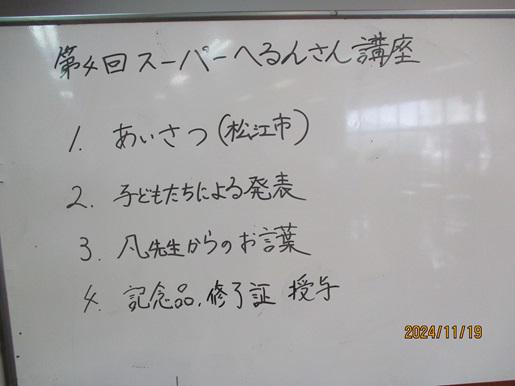 第4回スーパーへるんさん講座
1. あいさつ(松江市)
2. 子どもたちによる発表
3. 凡先生からのお言葉
4. 記念品、修了証 授与
2024/11/19